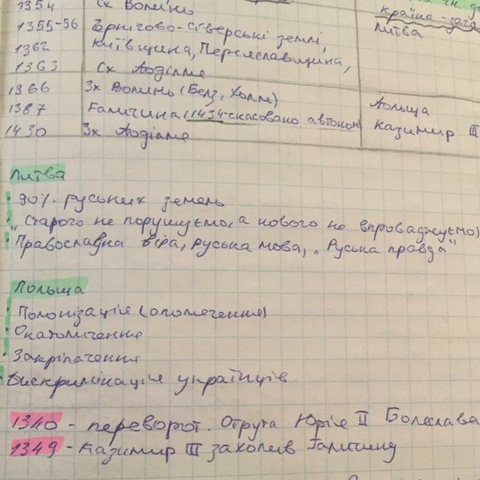 1354 Сх Волинь
країна-заг
1355-56 Чернігово-Сіверські землі,
Литва
1362 Київщина, Переяславщина,
1363 Сх Поділля
1366 Зх Волинь (Белз, Холм)
Польща
1387 Галичина (1434-скасовано автоном)
Казимир III
1430 Зх Поділля
Литва
· 90% руських земель
· „Старого не порушуємо, а нового не впроваджуємо)
· Православна віра, руська мова, „Руська правда"
Польща
· Полонізація (ополячення)
· Окатоличення
· Закріпачення
· Дискримінація українців
1340 - переворот. Отрута Юрія II Болеслава
1349 - Казимир III захопив Галичину